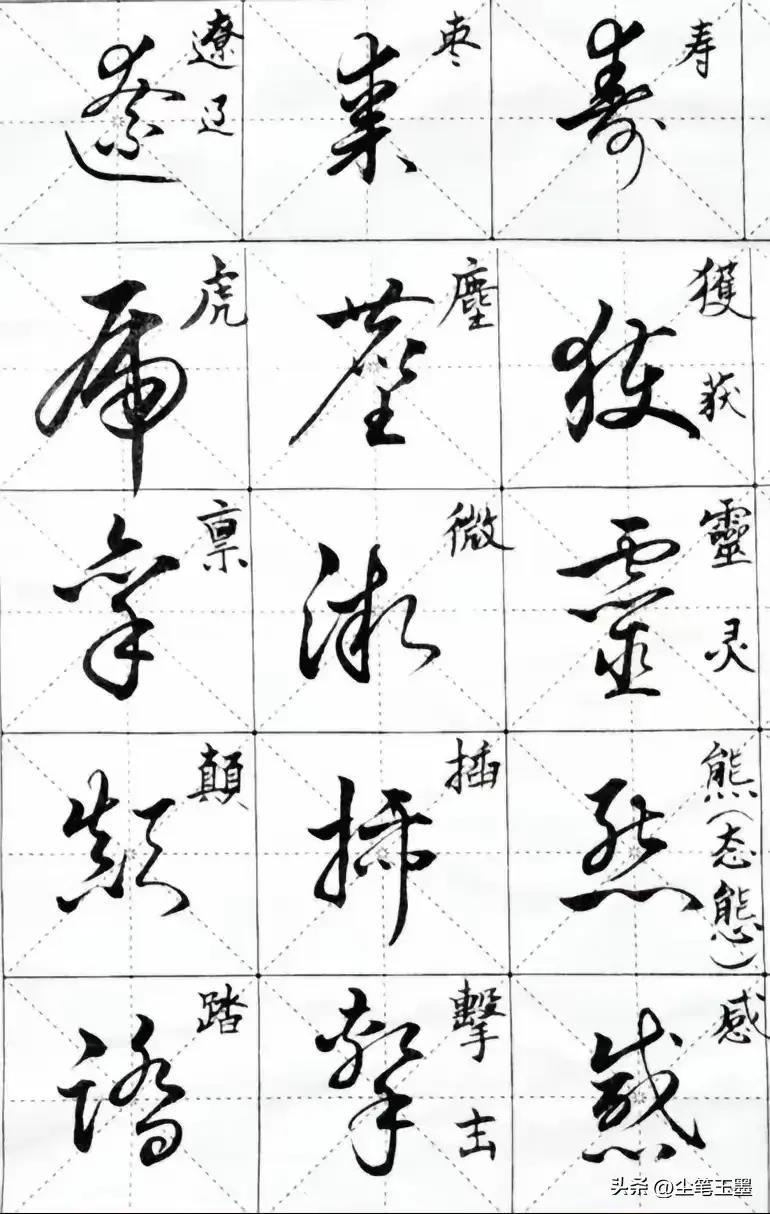 遼
遼 辽
棗
枣
壽
寿
虎
虎
塵
塵
獲
獲 获
禀
禀
微
微
靈
靈 灵
顛
顛
插
插
熊
熊(态 態)
踏
踏
擊
擊 击
感
感
头条 @尘笔玉墨